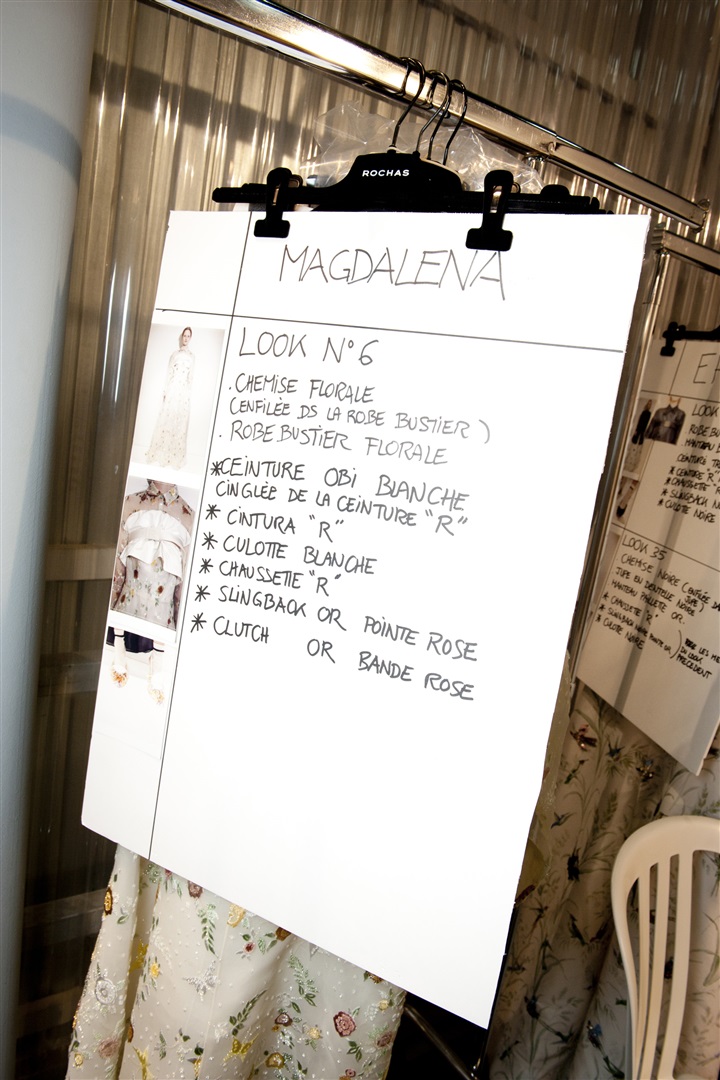 ROCHAS
MAGDALENA
LOOK N°6
. CHEMISE FLORALE
(ENFILÉE DS LA ROBE BUSTIER)
. ROBE BUSTIER FLORALE
*CEINTURE OBI BLANCHE
CINGLÉE DE LA CEINTURE "R"
* CINTURA "R"
* CULOTTE BLANCHE
* CHAUSSETTE "R"
* SLINGBACK OR POINTE ROSE
* CLUTCH OR BANDE ROSE
LOOK
ROBE
MANTEAU
CEINTURE
* CEINTURE "R"
* CHAUSSETTE
* SLINGBACK
* CULOTTE NOIRE
LOOK 35
CHEMISE NOIRE (ENFILÉE
JUPE)
JUPE EN DENTELLE NOIRE
MANTEAU PAILLETÉ OR.
* CHAUSSETTE "R"
* SLINGBACK NOIRE POINTE OR
* CULOTTE NOIRE
LES
DU LOOK
PRÉCÉDENT